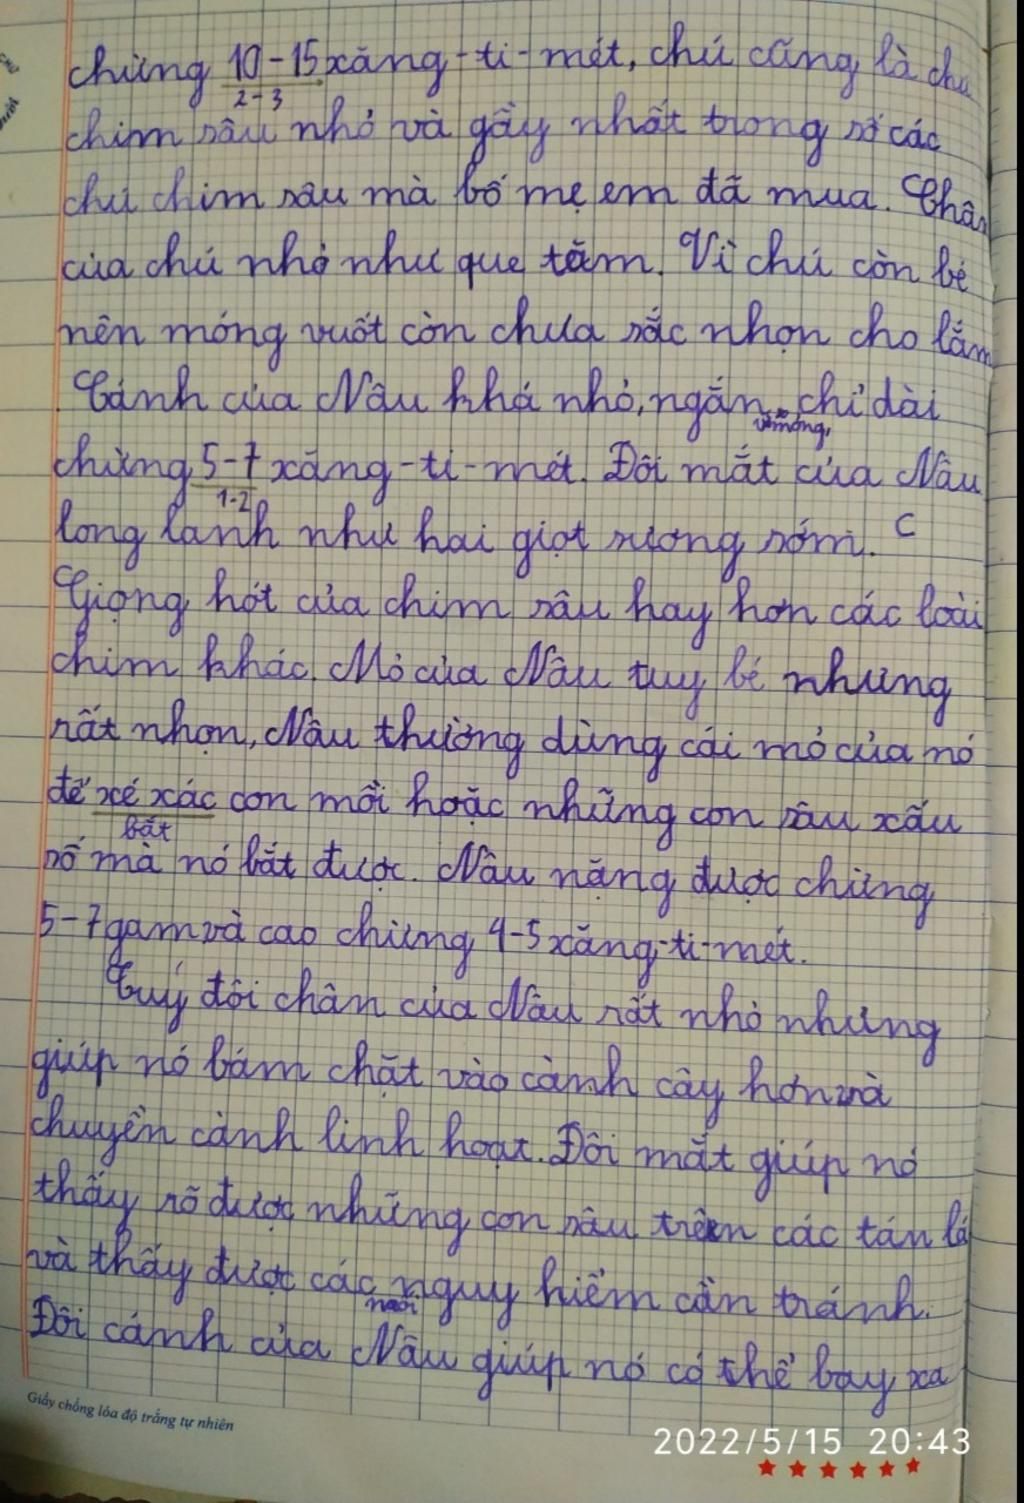 chừng 10-15 xăng-ti-mét, chú cũng là chú
2-3
chim sâu nhỏ và gầy nhất trong số các
chú chim sâu mà bố mẹ em đã mua. Chân
của chú nhỏ như que tăm. Vì chú còn bé
nên móng vuốt còn chưa sắc nhọn cho lắm
. Cánh của Nâu khá nhỏ, ngắn, chỉ dài
và mỏng,
chừng 5-7 xăng-ti-mét. Đôi mắt của Nâu
1-2
long lanh như hai giọt sương sớm. C
Giọng hót của chim sâu hay hơn các loài
chim khác. Mỏ của Nâu tuy bé nhưng
rất nhọn, Nâu thường dùng cái mỏ của nó
để xé xác con mồi hoặc những con sâu xấu
bắt
số mà nó bắt được. Nâu nặng được chừng
5-7 gam và cao chừng 4-5 xăng-ti-mét.
Tuy đôi chân của Nâu rất nhỏ nhưng
giúp nó bám chặt vào cành cây hơn và
chuyền cành linh hoạt. Đôi mắt giúp nó
thấy rõ được những con sâu trên các tán lá
và thấy được các nguy hiểm cần tránh.
mối
Đôi cánh của Nâu giúp nó có thể bay xa
Giấy chống lóa độ trắng tự nhiên
2022/5/15 20:43